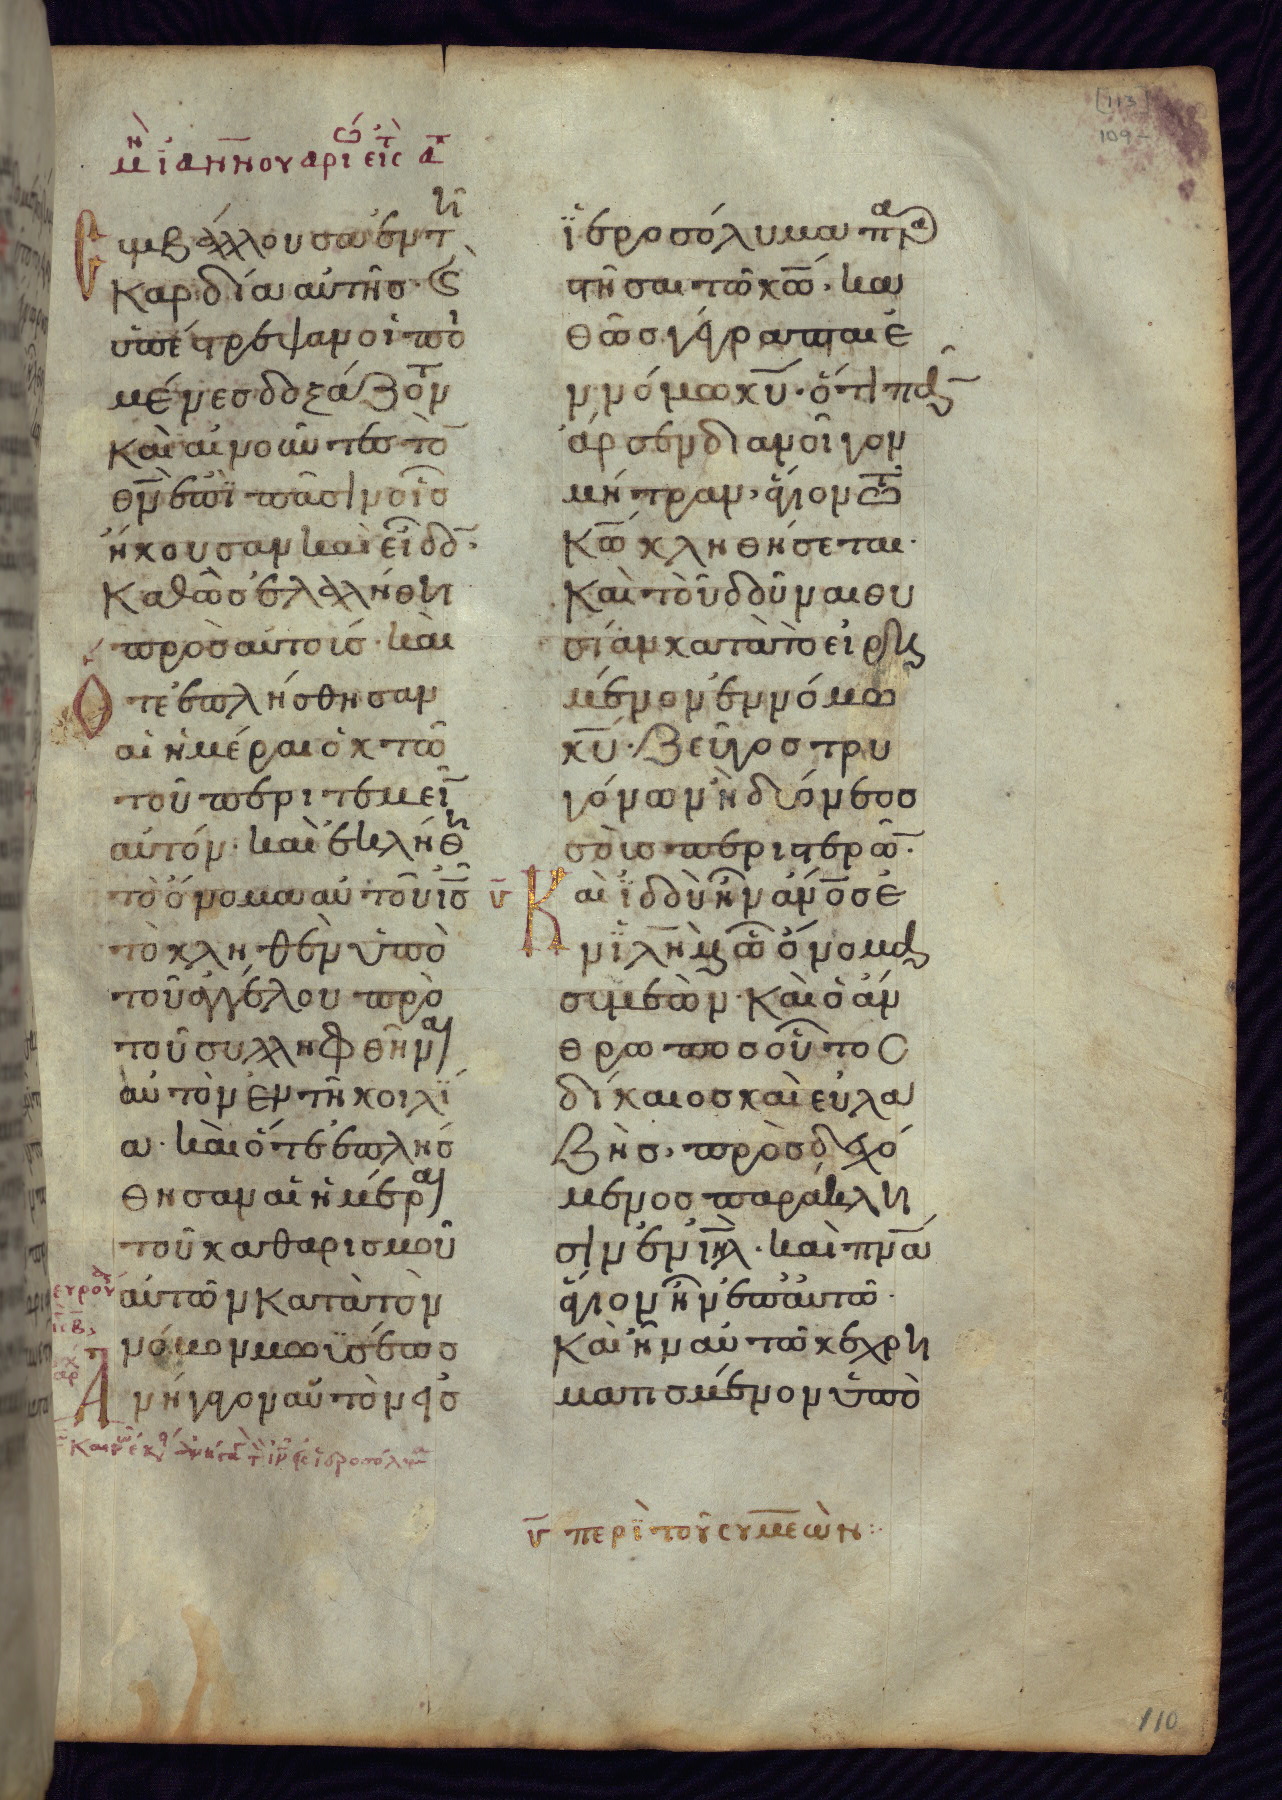 μη ἰαννουαρίω εἰς τ α
Συμβάλλουσα ἐν τῆ
καρδία αὐτῆς· (καὶ)
ὑπέστρεψαν οἱ ποι
μένες δοξάζοντ
καὶ αἰνοῦντες τὸ
θν ἐπὶ πᾶσιν οἷς
ἤκουσαν καὶ εἶδο·
καθὼς ἐλαλήθη
πρὸς αὐτούς· καὶ
Οτε ἐπλήσθησαν
αἱ ἡμέραι ὀκτὼ
τοῦ περιτεμεῖ
αὐτόν· καὶ ἐκλήθη
τὸ ὄνομα αὐτοῦ ις
τὸ κληθὲν ὑπὸ
τοῦ ἀγγέλου πρὸ
τοῦ συλληφθῆναι
αὐτὸν ἐν τῆ κοιλί
α· καὶ ὅτε ἐπλήσ
θησαν αἱ ἡμέραι
τοῦ καθαρισμοῦ
αὐτῶν κατὰ τὸν
νόμον μωϋσέως
Ανήγαγον αὐτὸν εἰς
ϊεροσόλυμα παρα
στῆσαι τῶ κω· κα
θὼς γέγραπται ἐ
ν νόμω κυ· ὅτι πᾶ
ἄρσεν διανοῖγον
μήτραν, ἅγιον τῶ
κω κληθήσεται·
καὶ τοῦ δοῦναι θυ
σίαν κατὰ τὸ εἰρη
μένον ἐν νόμω
κυ· ζεῦγος τρυ
γόνων ἢ δύο νεοσ
σοὺς περιστερῶ·
Καὶ ϊδοὺ ἦν ανος ἐ
ν ϊλημ ὧ ὄνομα
συμεών· καὶ ὁ ἄν
θρωπος οὗτος
δίκαιος καὶ εὐλα
βὴς, προσδεχό
μενος παράκλη
σιν ἐν ιηλ· καὶ πνα
ἅγιον ἦν ἐπ' αὐτῶ·
καὶ ἦν αὐτῶ κεχρη
ματισμένον ὑπὸ
υ περὶ τοῦ συμεὼν:
[113]
109
110